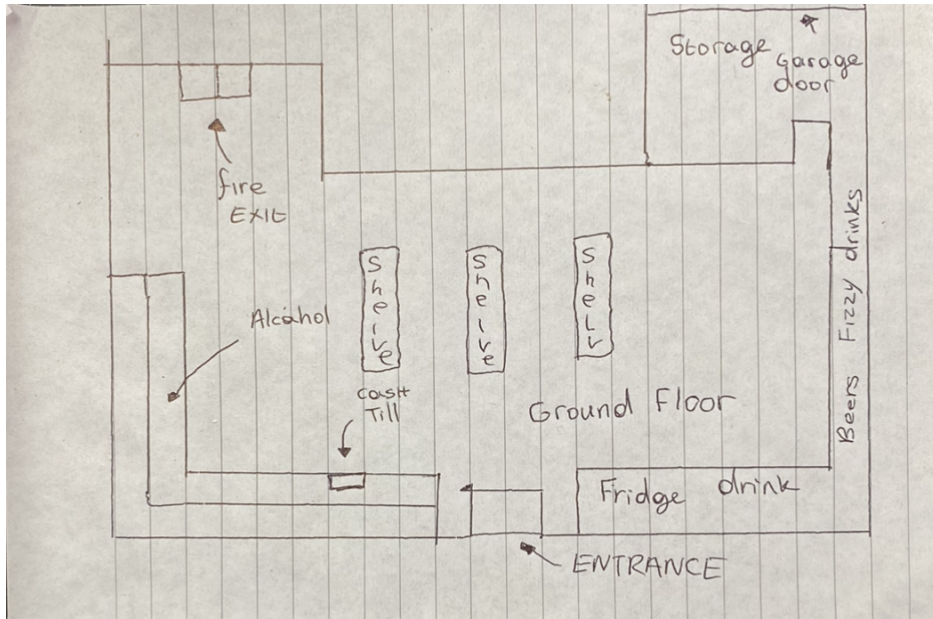 Storage
Garage
door
fire
EXIt
Shelve
Shelve
Shelv
Alcahol
cash
Till
Ground Floor
Beers Fizzy drinks
Fridge drink
ENTRANCE